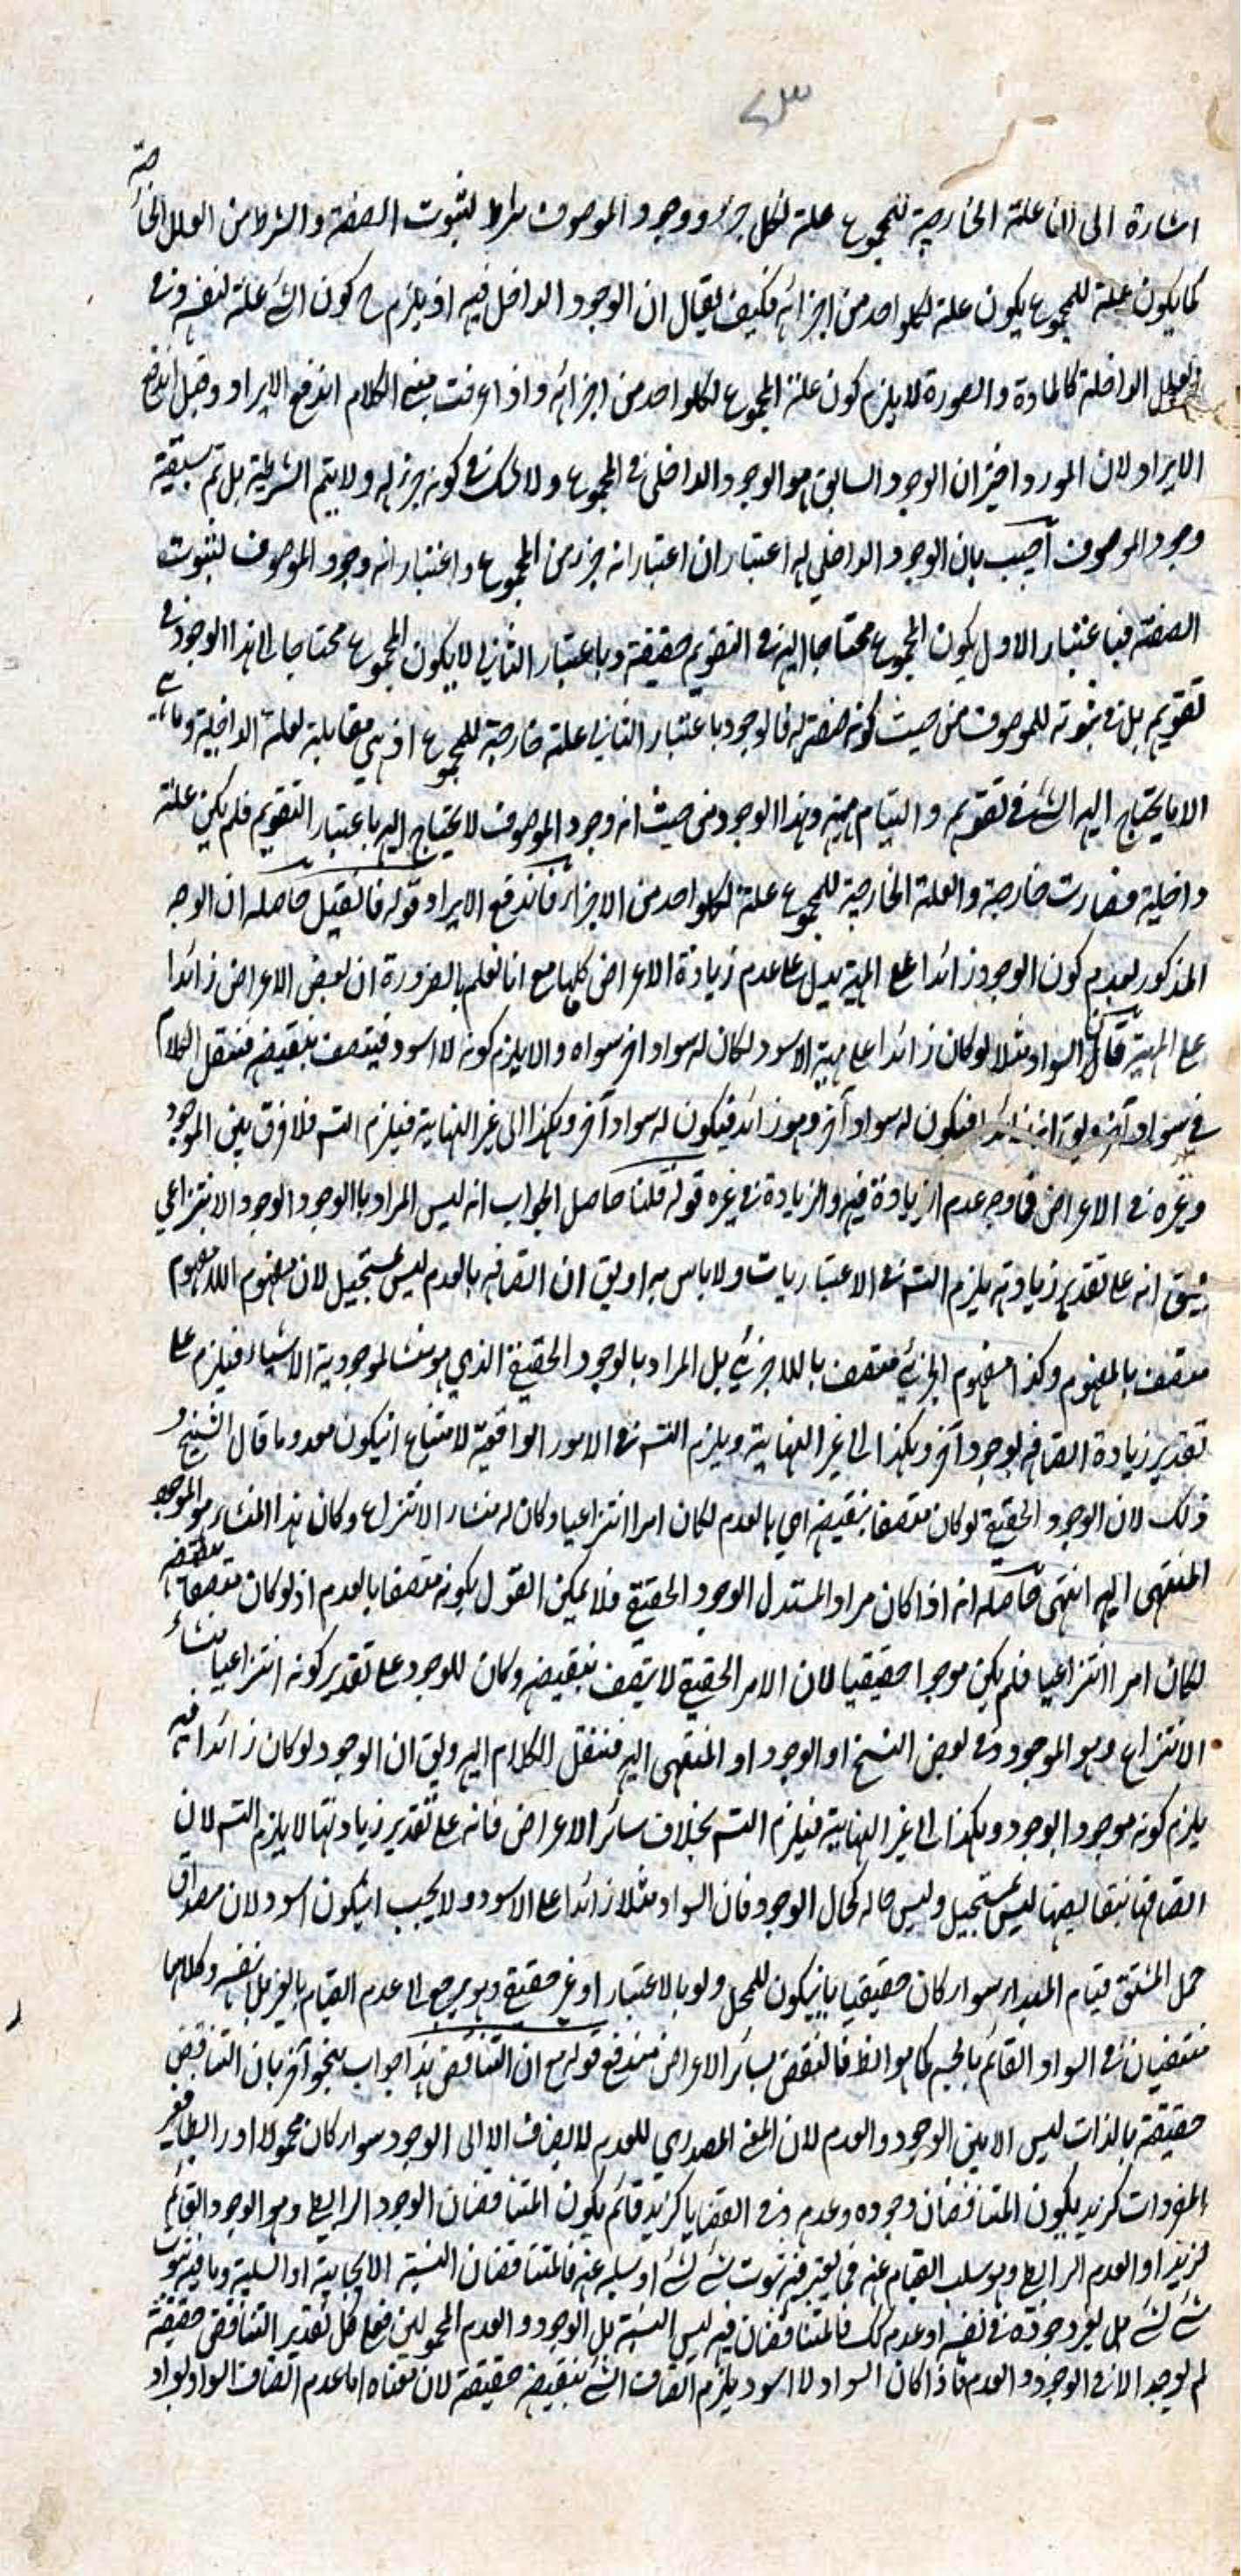 ٧٣
اشارة الى ان علة الخارجية للمجموع علة لكل جزء ووجود الموصوف شرط لثبوت الصفة والشرط من العلل الخارجية
كما يكون علة للمجموع يكون علة لكلواحد من اجزائه فكيف يقال ان الوجود الداخل فيه اذ يلزم ح كون الشئ علة لنفسه وفى
العلل الداخلة كالمادة والصورة لا يلزم كون علة المجموع لكلواحد من اجزائه واذا عرفت معنى الكلام اندفع الايراد وقيل اندفع
الايراد لان المورد اختر ان الوجود السابق هو الوجود الداخلى فى المجموع ولا شك فى كونه جزء له ولا يتم الشرطية بل تم سبقية
وجود الموصوف اجيب بان الوجود الداخلي له اعتباران اعتبار انه جزء من المجموع واعتبار انه وجود الموصوف لثبوت
الصفة فباعتبار الاول يكون المجموع محتاجا اليه فى التقويم حقيقة وباعتبار الثاني لا يكون المجموع محتاجا الى هذا الوجود فى
تقويم بل فى ثبوته للموصوف من حيث كونه صفة له فالوجود باعتبار الثاني علة خارجة للمجموع اذ هي مقابلة لعلة الداخلية وما هي
الا ما يحتاج اليه الشئ فى تقويمه والتيام مهيته وهذا الوجود من حيث انه وجود الموصوف لا يحتاج اليه باعتبار التقويم فلم يكن علة
داخلية فصارت خارجة والعلة الخارجية للمجموع علة لكلواحد من الاجزاء فاندفع الايراد قوله فان قيل حاصله ان الوجه
المذكور لعدم كون الوجود زائدا على المهية يدل على عدم زيادة الاعراض كلها مع انا نعلم بالضرورة ان بعض الاعراض زائدا
على المهية فان السواد مثلا لو كان زائدا على مهية الاسود لكان له سواد اخر سواه والا يلزم كونه لا اسود فيتصف بنقيضه فننقل الكلام
في سواد آخر ويق انه زائد فيكون له سواد آخر وهو زائد فيكون له سواد آخر وهكذا الى غير النهاية فيلزم التسـ فلا فرق بين الوجود
وغيره فى الاعراض فما وجه عدم الزيادة فيه والزيادة فى غيره قوله قلنا حاصل الجواب انه ليس المراد بالوجود الوجود الانتزاعي
فيق انه على تقدير زيادته يلزم التسـ فى الاعتباريات ولا باس به او يق ان اتصافه بالعدم ليس بمستحيل لان مفهوم اللامفهوم
متصف بالمفهوم وكذا مفهوم الجزئي متصف باللاجزئي بل المراد بالوجود الحقيقي الذي هو منشأ لموجودية الاشياء فيلزم على
تقدير زيادة اتصافه بوجود آخر وهكذا الى غير النهاية ويلزم التسـ فى الامور الواقعية لامتناع ان يكون معدوما قال الشيخ و
ذلك لان الوجود الحقيقي لو كان متصفا بنقيضه اي بالعدم لكان امرا انتزاعيا وكان له منشاء الانتزاع وكان هذا المنشاء هو الموجود
المنتهى اليه انتهى حاصله انه اذا كان مراد المستدل الوجود الحقيقي فلا يمكن القول بكونه متصفا بالعدم اذ لو كان متصفا بنقيضه
لكان امرا انتزاعيا فلم يكن موجودا حقيقيا لان الامر الحقيقي لا يتصف بنقيضه وكان للوجود على تقدير كونه انتزاعيا منشاء
الانتزاع وهو الموجود وفى بعض النسخ او الوجود او المنتهى اليه فننقل الكلام اليه ويق ان الوجود لو كان زائدا فيه
يلزم كونه موجودا بوجود وهكذا الى غير النهاية فيلزم التسـ بخلاف سائر الاعراض فانه على تقدير زيادتها لا يلزم التسـ لان
اتصافها بنقائضها ليس بمستحيل وليس حاله كحال الوجود فان السواد مثلا زائدا على الاسود ولا يجب ان يكون اسود لان مصداق
حمل المشتق قيام المبدا سواء كان حقيقيا بان يكون للمحل ولو بالاعتبار او غير حقيقي وهو يرجع الى عدم القيام بالغير بل بنفسه وكلاهما
منتفيان فى السواد القائم بالجسم كما هو الظ فالنقض بسائر الاعراض مندفع قوله مع ان التناقض هذا جواب بنحو آخر بان التناقض
حقيقة بالذات ليس الا بين الوجود والعدم لان المعنى المصدري للعدم لا يضاف الا الى الوجود سواء كان محمولا او رابطا ففى
المفردات كزيد يكون المتناقضان وجوده وعدمه وفى القضايا كزيد قائم يكون المتناقضان الوجود الرابطي وهو الوجود القائم
لزيد او العدم الرابطي وهو سلب القيام عنه فما يعتبر فيه ثبوت شئ لشئ او سلبه عنه فالمتناقضان النسبة الايجابية او السلبية وما فيه ثبوت
شئ لشئ بل يعتبر وجوده فى نفسه او عدمه كك فالمتناقضان فيه ليس النسبة بل الوجود والعدم المحموليين فعلى كل تقدير التناقض حقيقة
لم يوجد الا فى الوجود والعدم فاذا كان السواد لا اسود يلزم اتصاف الشئ بنقيضه حقيقة لان معناه اما عدم اتصاف السواد بسواد